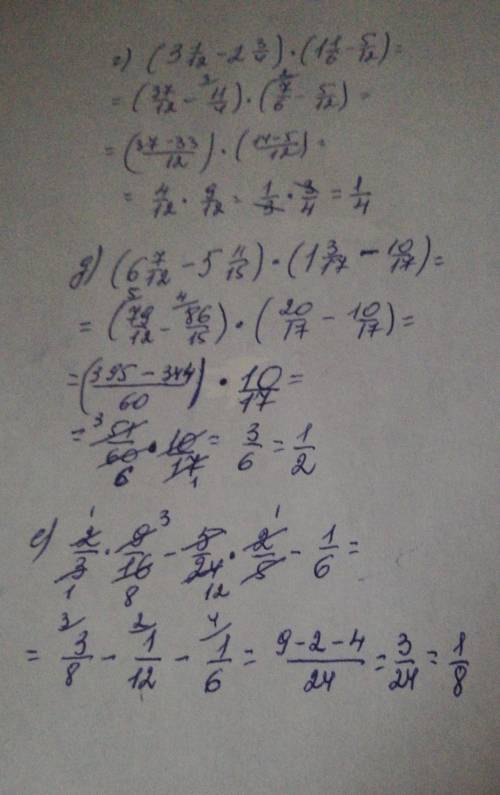 г) (3 1/12 - 2 3/4) · (1 1/6 - 5/12) =
= (37/12 - 3/ 11/4) · (2/ 7/6 - 5/12) =
= (37-33/12) · (14-5/12) =
= 4/12 · 9/12 = 1/3 · 3/4 = 1/4
д) (6 7/12 - 5 11/15) · (1 3/17 - 10/17) =
= (5/ 79/12 - 4/ 86/15) · (20/17 - 10/17) =
= (395-344/60) · 10/17 =
= 3 51/60 6 · 10/17 1 = 3/6 = 1/2
е) 1 2/3 1 · 9 3/16 8 - 5/24 12 · 2 1/5 - 1/6 =
= 3/ 3/8 - 2/ 1/12 - 4/ 1/6 = 9-2-4/24 = 3/24 = 1/8